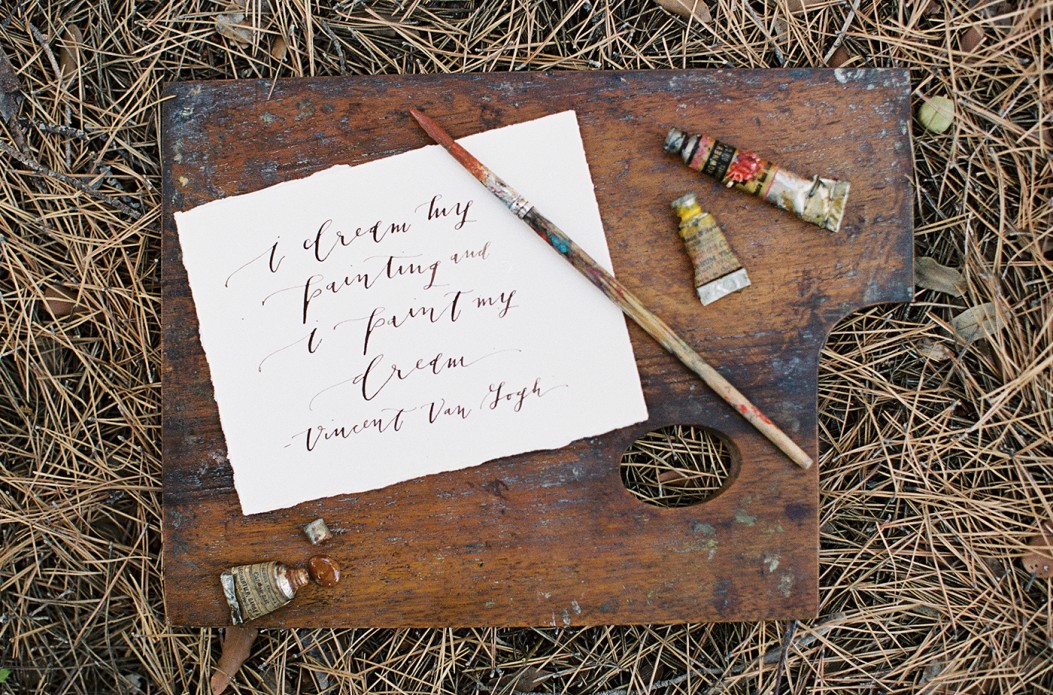 i dream my
painting and
i paint my
dream
Vincent Van Gogh